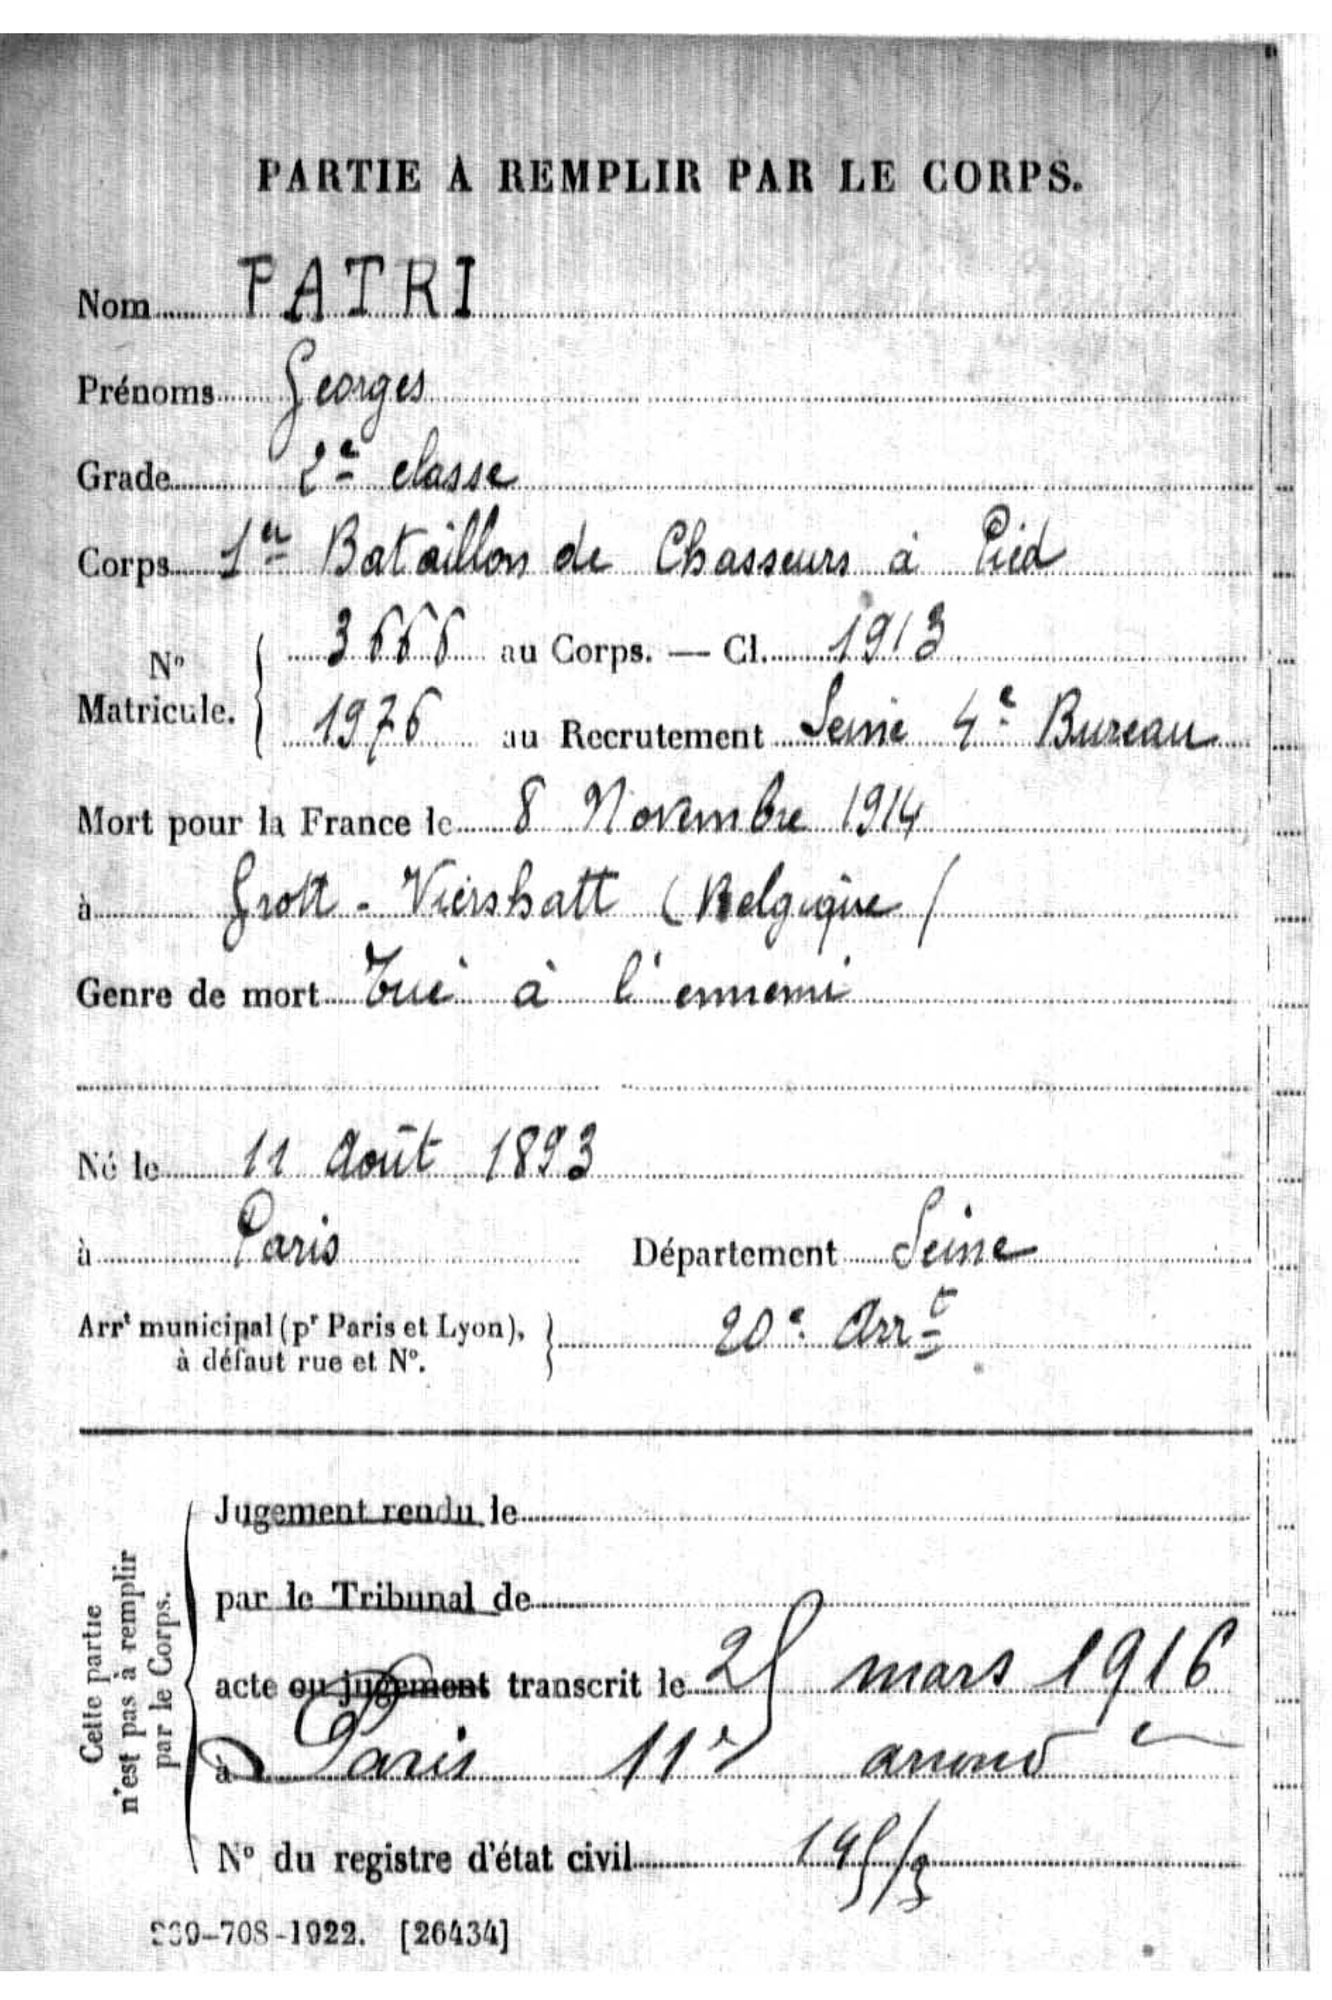 PARTIE À REMPLIR PAR LE CORPS.
Nom PATRI
Prénoms Georges
Grade 2e classe
Corps 1er Bataillon de Chasseurs à Pied
No Matricule. 3666 au Corps. — Cl. 1913
1976 au Recrutement Seine 4e Bureau
Mort pour la France le 8 Novembre 1914
à Grott - Viershatt (Belgique)
Genre de mort Tué à l'ennemi
Né le 11 Août 1893
à Paris Département Seine
Arrt municipal (pr Paris et Lyon), à défaut rue et No. 20e Arrt
Cette partie n'est pas à remplir par le Corps.
Jugement rendu le
par le Tribunal de
acte ou jugement transcrit le 25 mars 1916
à Paris 11e arrond
No du registre d'état civil 195/3
-708-1922. [26434]